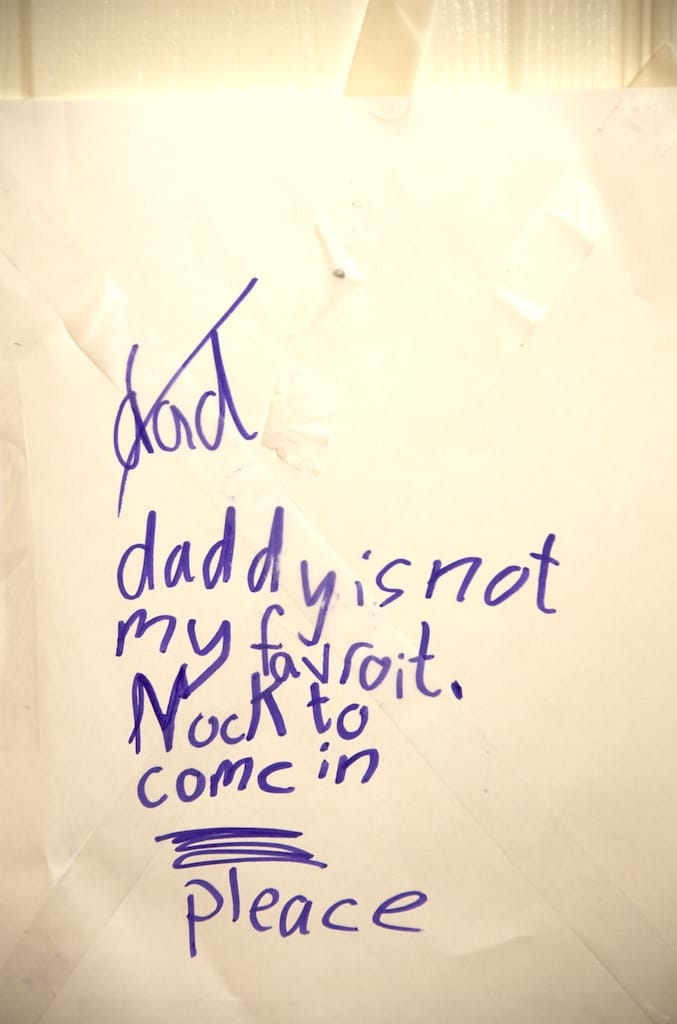 dad
daddy is not
my favroit.
Nock to
come in
pleace